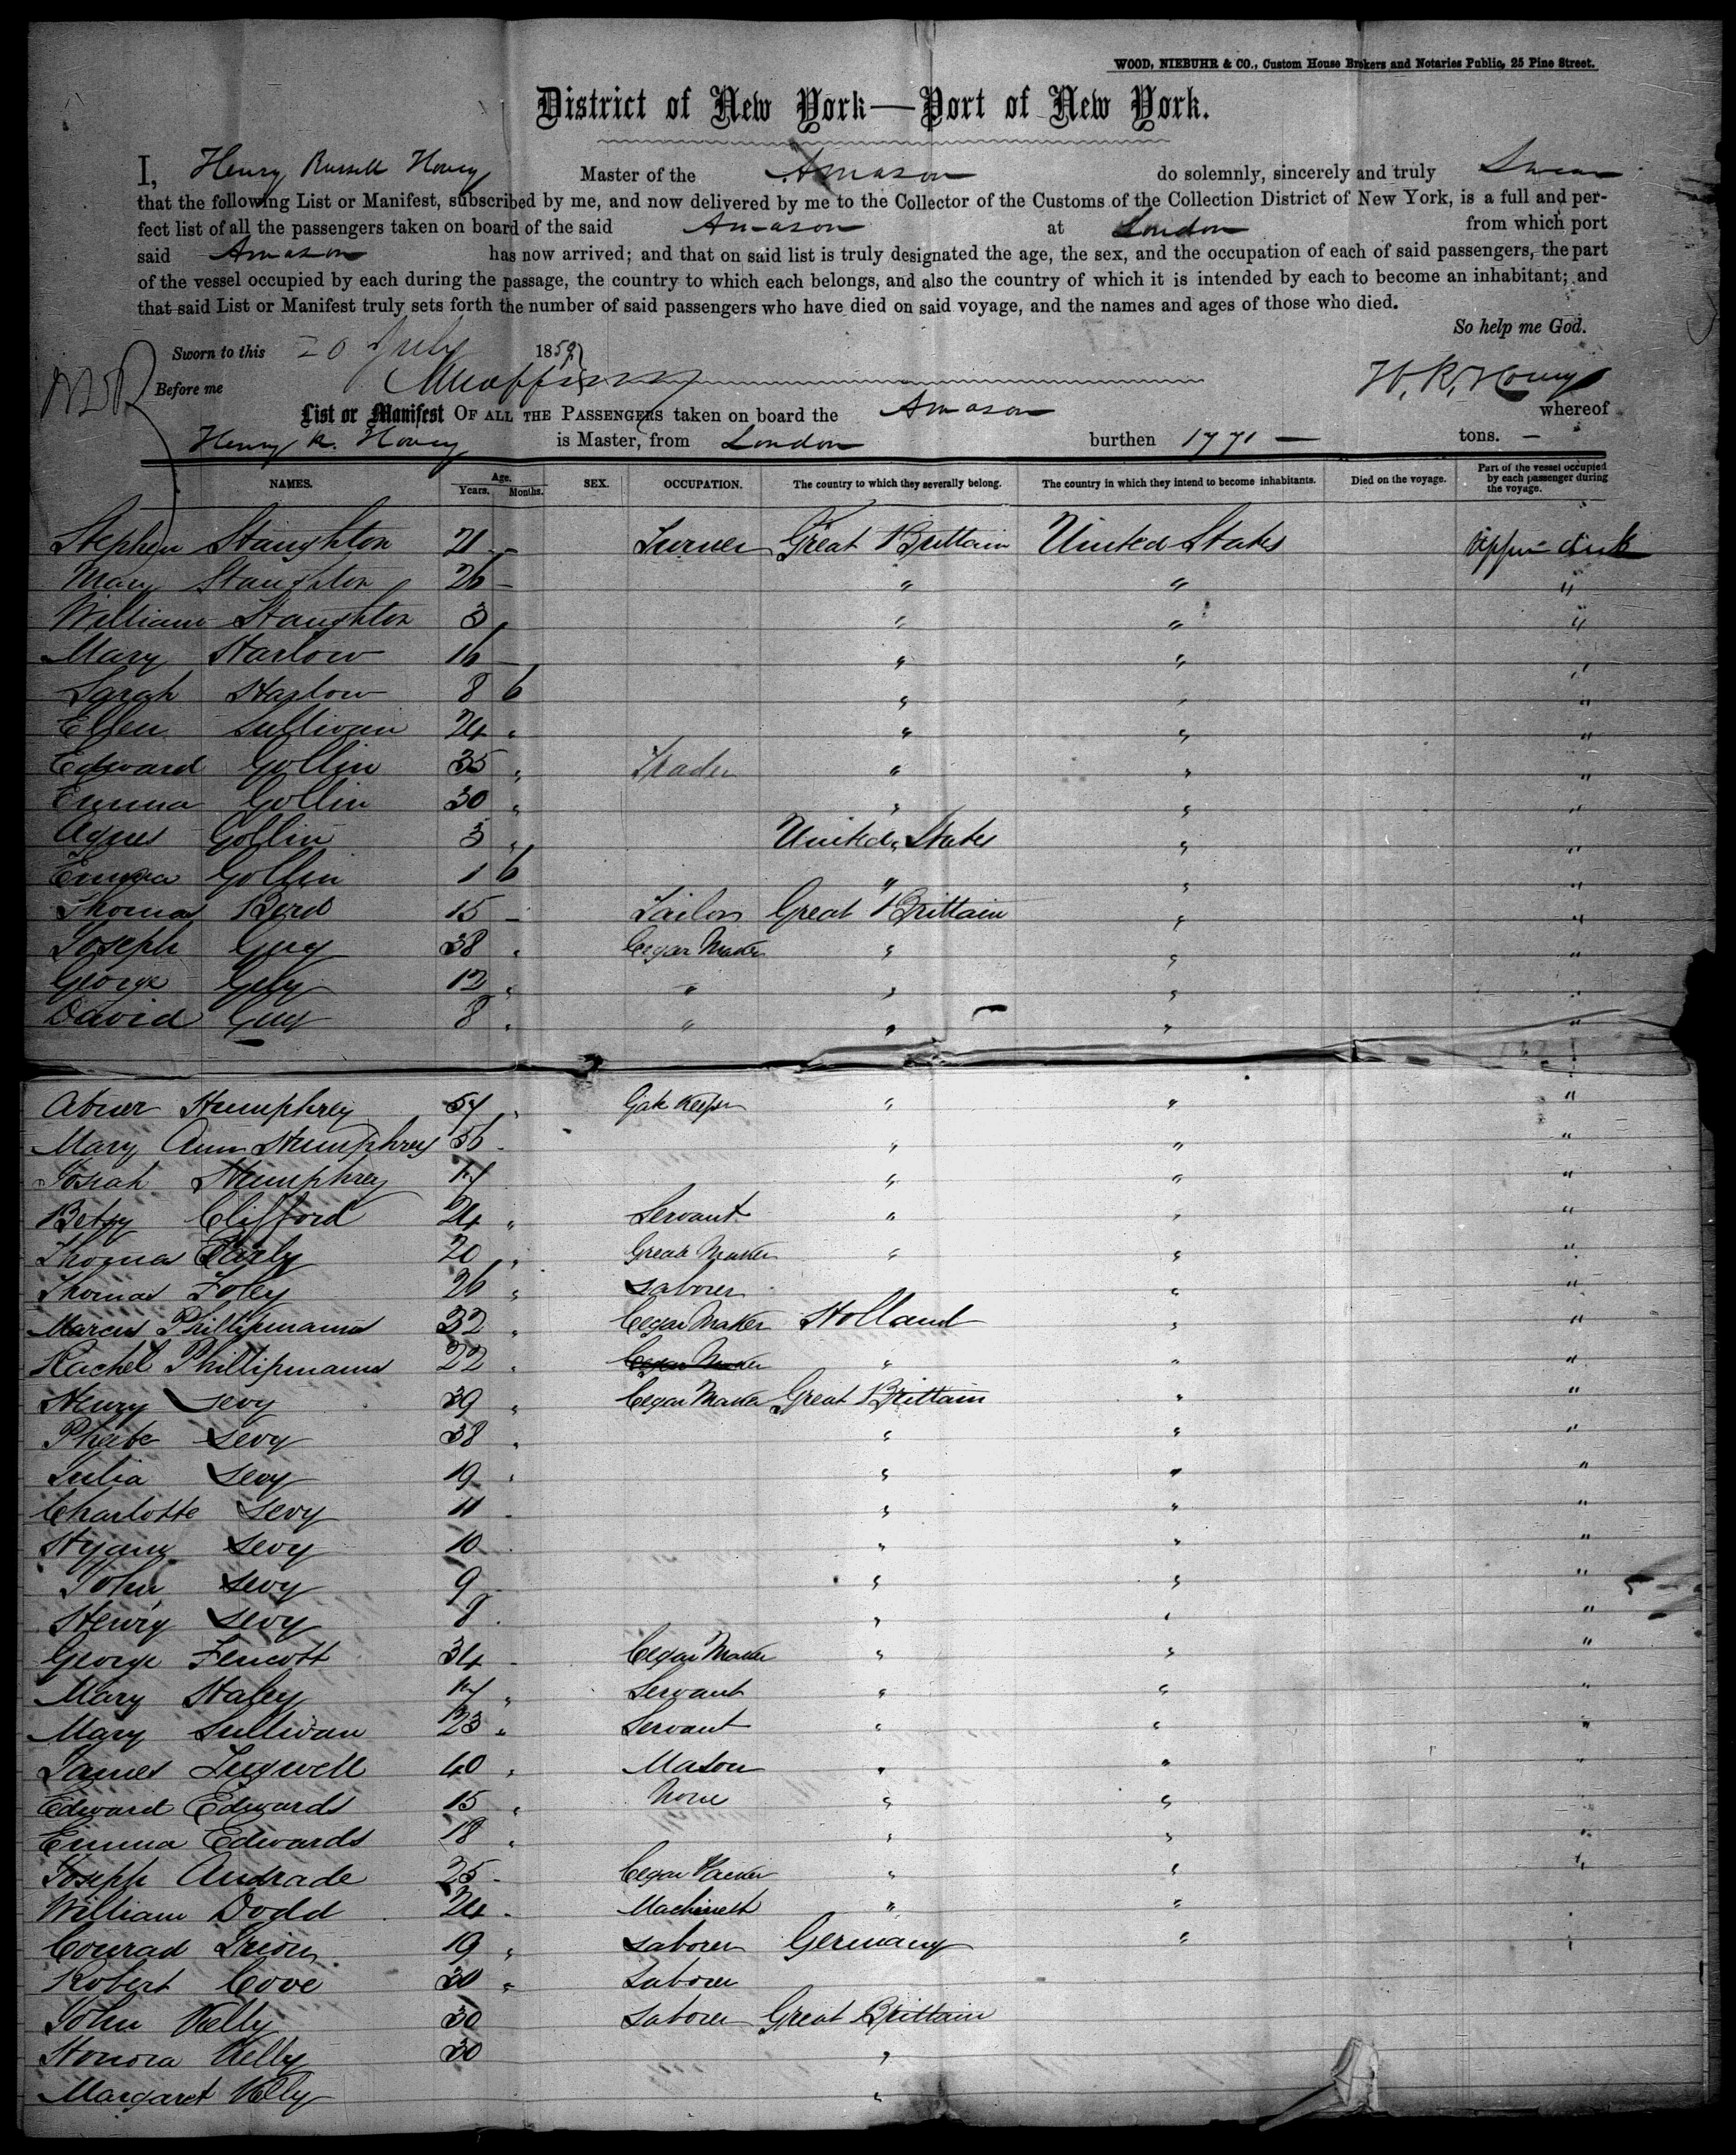 WOOD, NIEBUHR & CO., Custom House Brokers and Notaries Public, 25 Pine Street.
District of New York—Port of New York.
I, Henry Russell Hovey Master of the Amazon do solemnly, sincerely and truly Swear
that the following List or Manifest, subscribed by me, and now delivered by me to the Collector of the Customs of the Collection District of New York, is a full and per-
fect list of all the passengers taken on board of the said Amazon at London from which port
said Amazon has now arrived; and that on said list is truly designated the age, the sex, and the occupation of each of said passengers, the part
of the vessel occupied by each during the passage, the country to which each belongs, and also the country of which it is intended by each to become an inhabitant; and
that said List or Manifest truly sets forth the number of said passengers who have died on said voyage, and the names and ages of those who died.
So help me God.
Sworn to this 20 July 1859
Before me H. R. Hovey
List or Manifest OF ALL THE PASSENGERS taken on board the Amazon whereof
Henry R. Hovey is Master, from London burthen 1771 — tons. —
NAMES. Age. Years. Months. SEX. OCCUPATION. The country to which they severally belong. The country in which they intend to become inhabitants. Died on the voyage. Part of the vessel occupied by each passenger during the voyage.
Stephen Staughton 21 - Turner Great Brittain United States Upper deck
Mary Staughton 26 - " " "
William Staughton 3 " " " "
Mary Harlow 16 - " " "
Sarah Harlow 8 6 " " "
Ellen Sullivan 24 " " " "
Edward Gollin 35 " Trader " " "
Emma Gollin 30 " " " "
Agnes Gollin 3 " United States " "
Emma Gollin 1 6 " " "
Thomas Berd 15 - Tailor Great Brittain " "
Joseph Guy 38 " Cegar Maker " " "
George Guy 12 " " " " "
David Guy 8 " " " " "
Abner Humphrey 57 " Gate Keeper " " "
Mary Ann Humphrey 56 - " " "
Josiah Humphrey 17 " " "
Betsy Clifford 24 " Servant " " "
Thomas Early 20 " Maker " " "
Thomas Foley 26 " Laborer " "
Marcus Phillipmanns 32 " Cegar Maker Holland " "
Rachel Phillipmanns 22 " Cegar Maker " " "
Henry Levy 39 " Cegar Maker Great Brittain " "
Phebe Levy 38 " " " "
Julia Levy 19 " " " "
Charlotte Levy 11 - " " "
Hyam Levy 10 - " " "
John Levy 9 - " " "
Henry Levy 8 - " " "
George Fencott 34 - Cegar Maker " " "
Mary Haley 17 " Servant " " "
Mary Sullivan 23 " Servant " " "
James Tugwell 40 " Mason " " "
Edward Edwards 15 " None " " "
Emma Edwards 18 " " " "
Joseph Andrade 25 - Cegar Maker " " "
William Dodd 24 - Machinest " "
Conrad Trion 19 " Laborer Germany " "
Robert Cove 30 " Laborer
John Kelly 30 Laborer Great Brittain
Honora Kelly 30 "
Margaret Kelly "